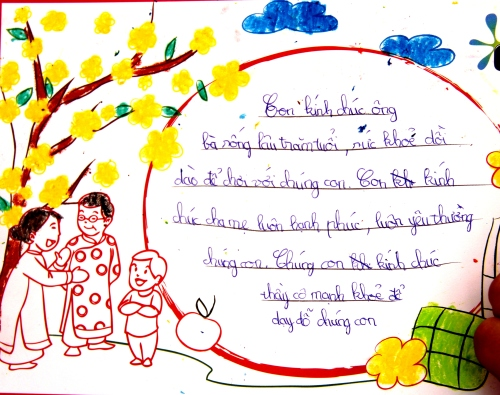 Con kính chúc ông
bà sống lâu trăm tuổi, sức khoẻ dồi
dào để chơi với chúng con. Con kính
chúc cha mẹ luôn hạnh phúc, luôn yêu thương
chúng con. Chúng con kính chúc
thầy cô mạnh khoẻ để
dạy dỗ chúng con